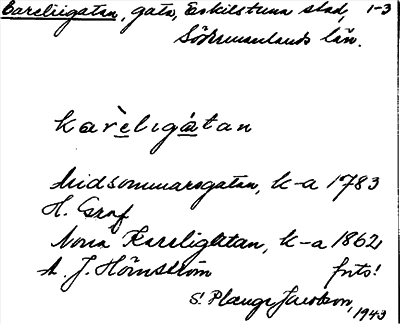 Careliigatan, gata, Eskilstuna stad, 1-3
Södermanlands län.
karèligátan
Midsommarsgatan, k-a 1783
H. Graf
Norra Kareligatan, k-a 1862,
A. J. Hörnström forts!
S. Plaugs Jacobson, 1943